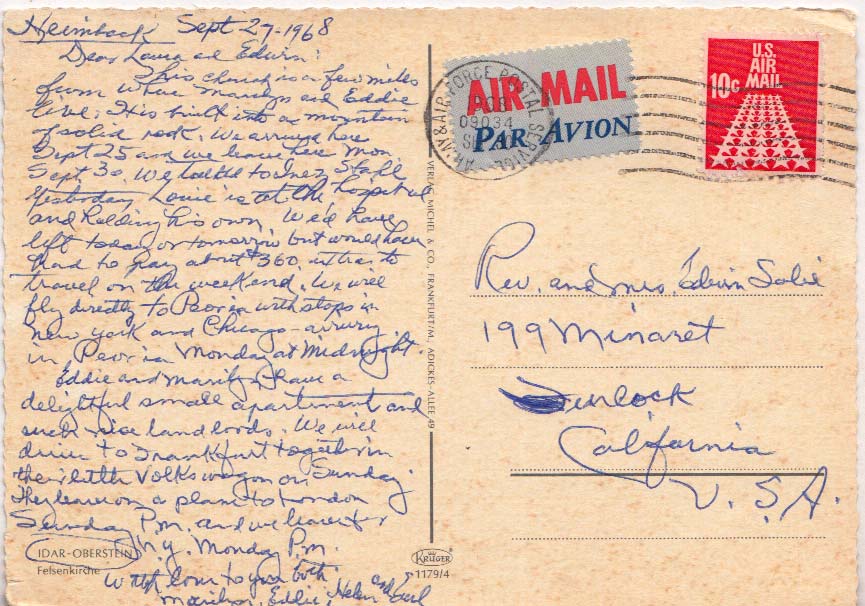 Heimbach Sept 27-1968
Dear Laura and Edwin:
This church is a few miles
from where Marilyn and Eddie
live. It is built into a mountain
of solid rock. We arrived here
Sept 25 and we leave here Mon
Sept 30. We talked to Inez Stahl
yesterday. Louie is at the hospital
and holding his own. We'd have
left today or tomorrow but would have
had to pay about $360 extra to
travel on the weekend. We will
fly directly to Peoria with stops in
New York and Chicago - arriving
in Peoria Monday at Midnight.
Eddie and Marilyn have a
delightful small apartment and
such nice land lords. We will
drive to Frankfurt together in
their little Volkswagon on Sunday.
They leave on a plane to London
Sunday P.M. and we leave for
N.Y. Monday P.M.
With love to you both.
Marilyn, Eddie, Helen and Earl
IDAR-OBERSTEIN
Felsenkirche
VERLAG MICHEL & CO., FRANKFURT/M., ADICKES-ALLEE 49
KRÜGER
1179/4
ARMY & AIR FORCE POSTAL SERVICE
09034
AIR MAIL
PAR AVION
U.S.
AIR
MAIL
10c
Rev. and Mrs. Edwin Solie
199 Minaret
Turlock
California
U.S.A.